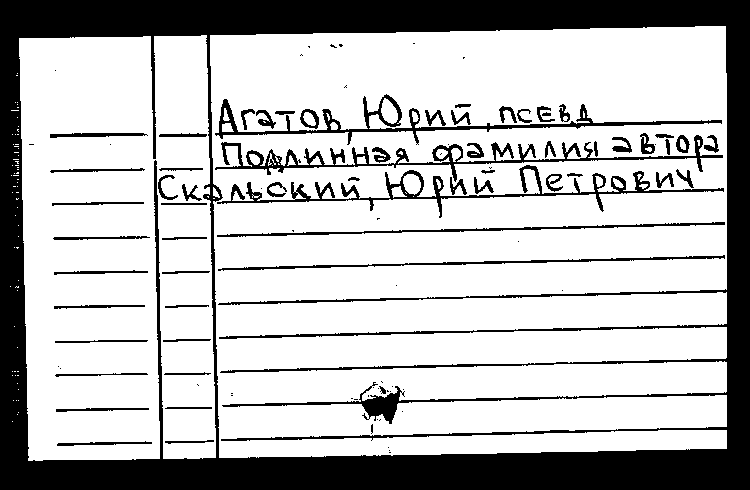 Агатов, Юрий, псевд
Подлинная фамилия автора
Скальский, Юрий Петрович